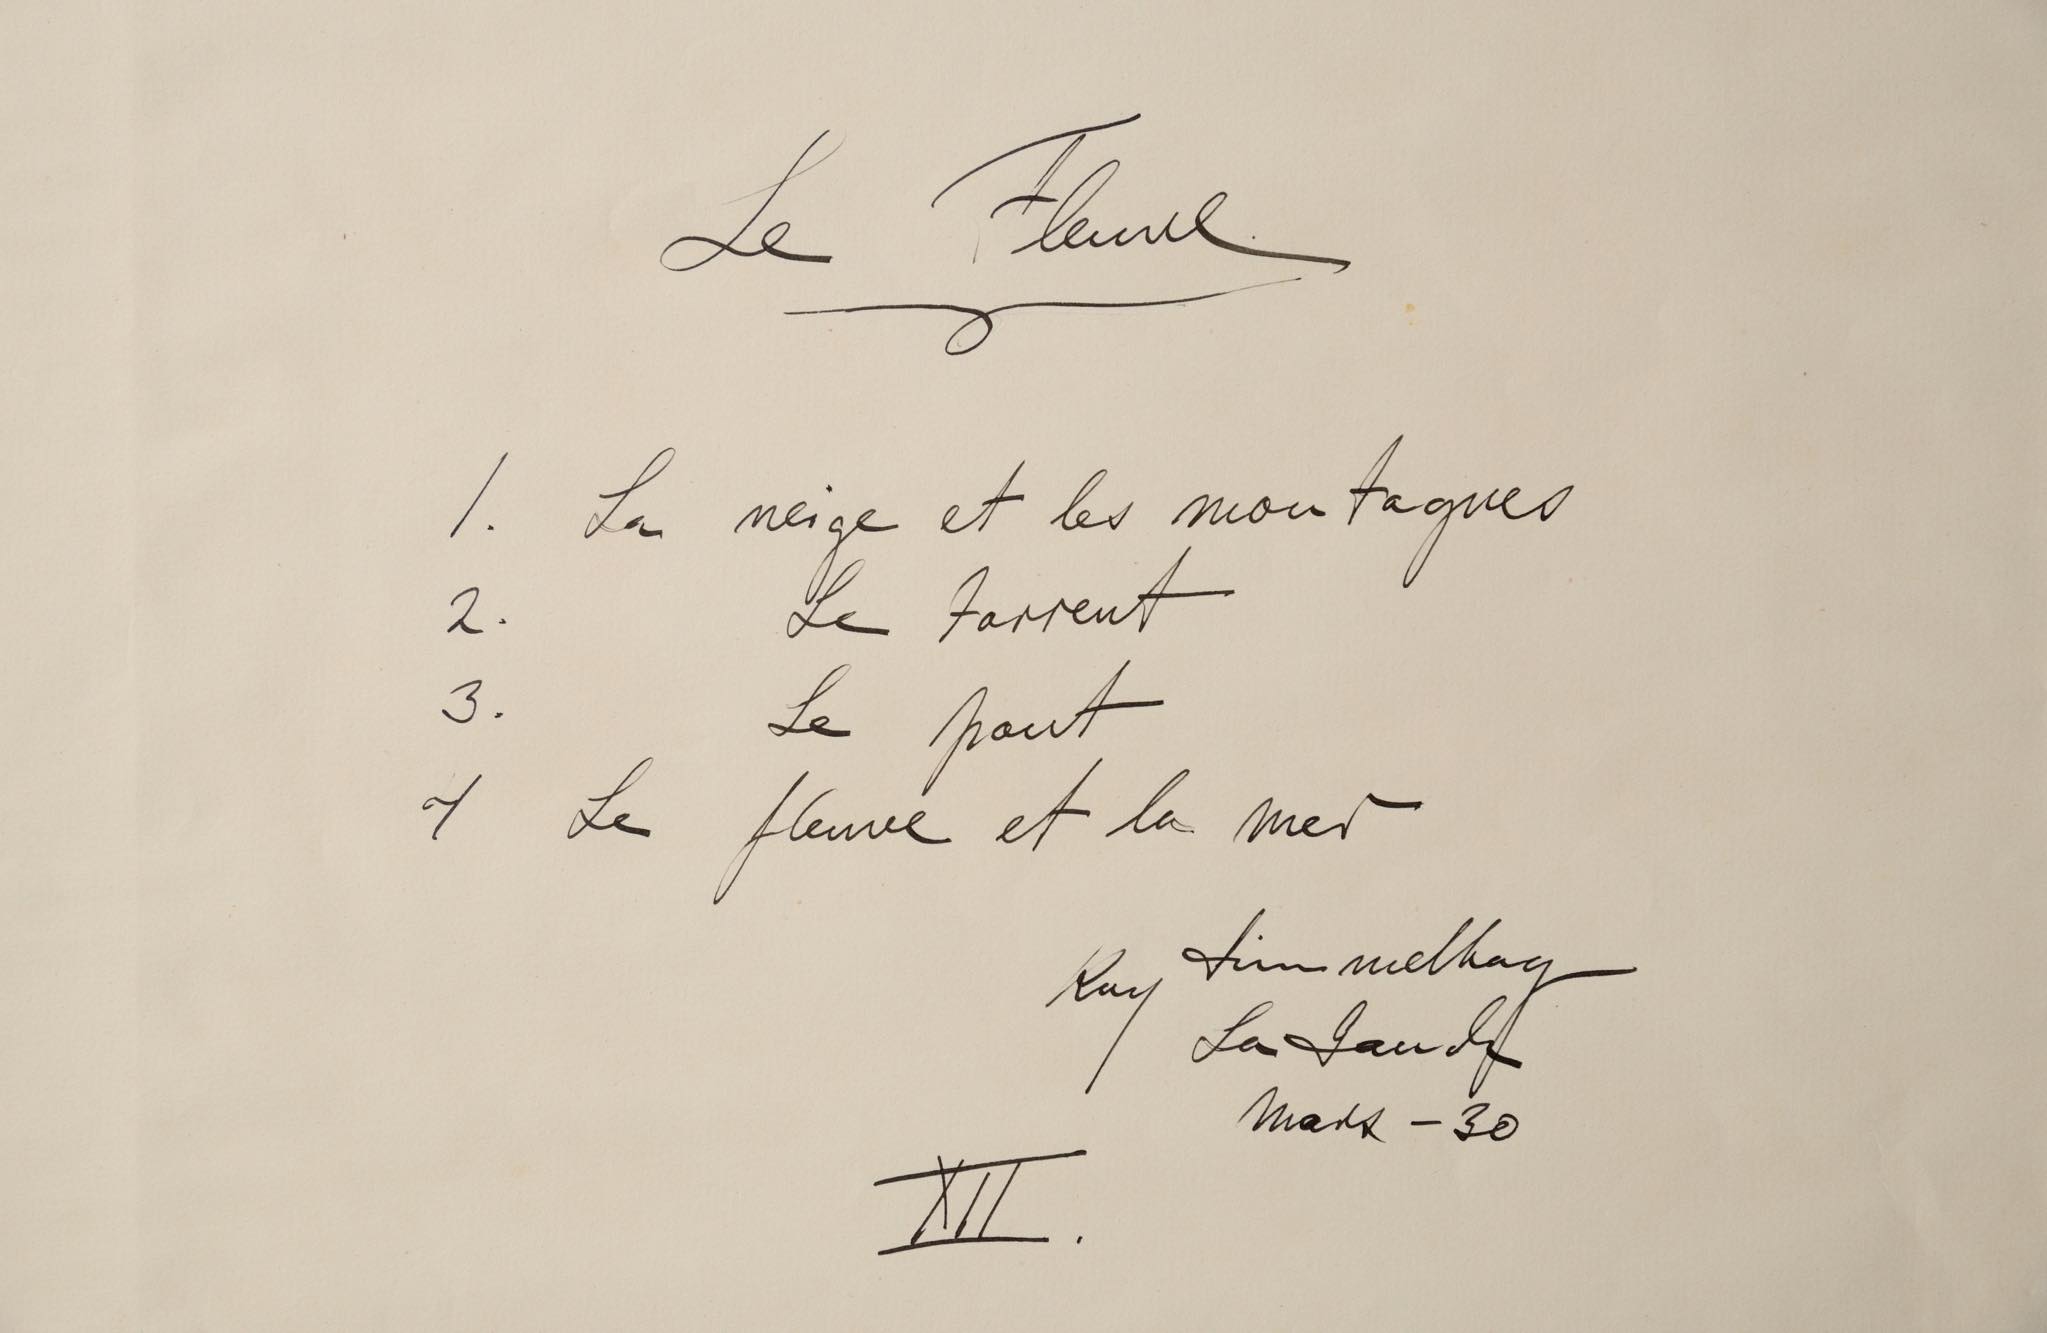 Le Fleuve
1. La neige et les montagnes
2. Le torrent
3. Le pont
4 Le fleuve et la mer
La Gaude
Mars - 30
XII.